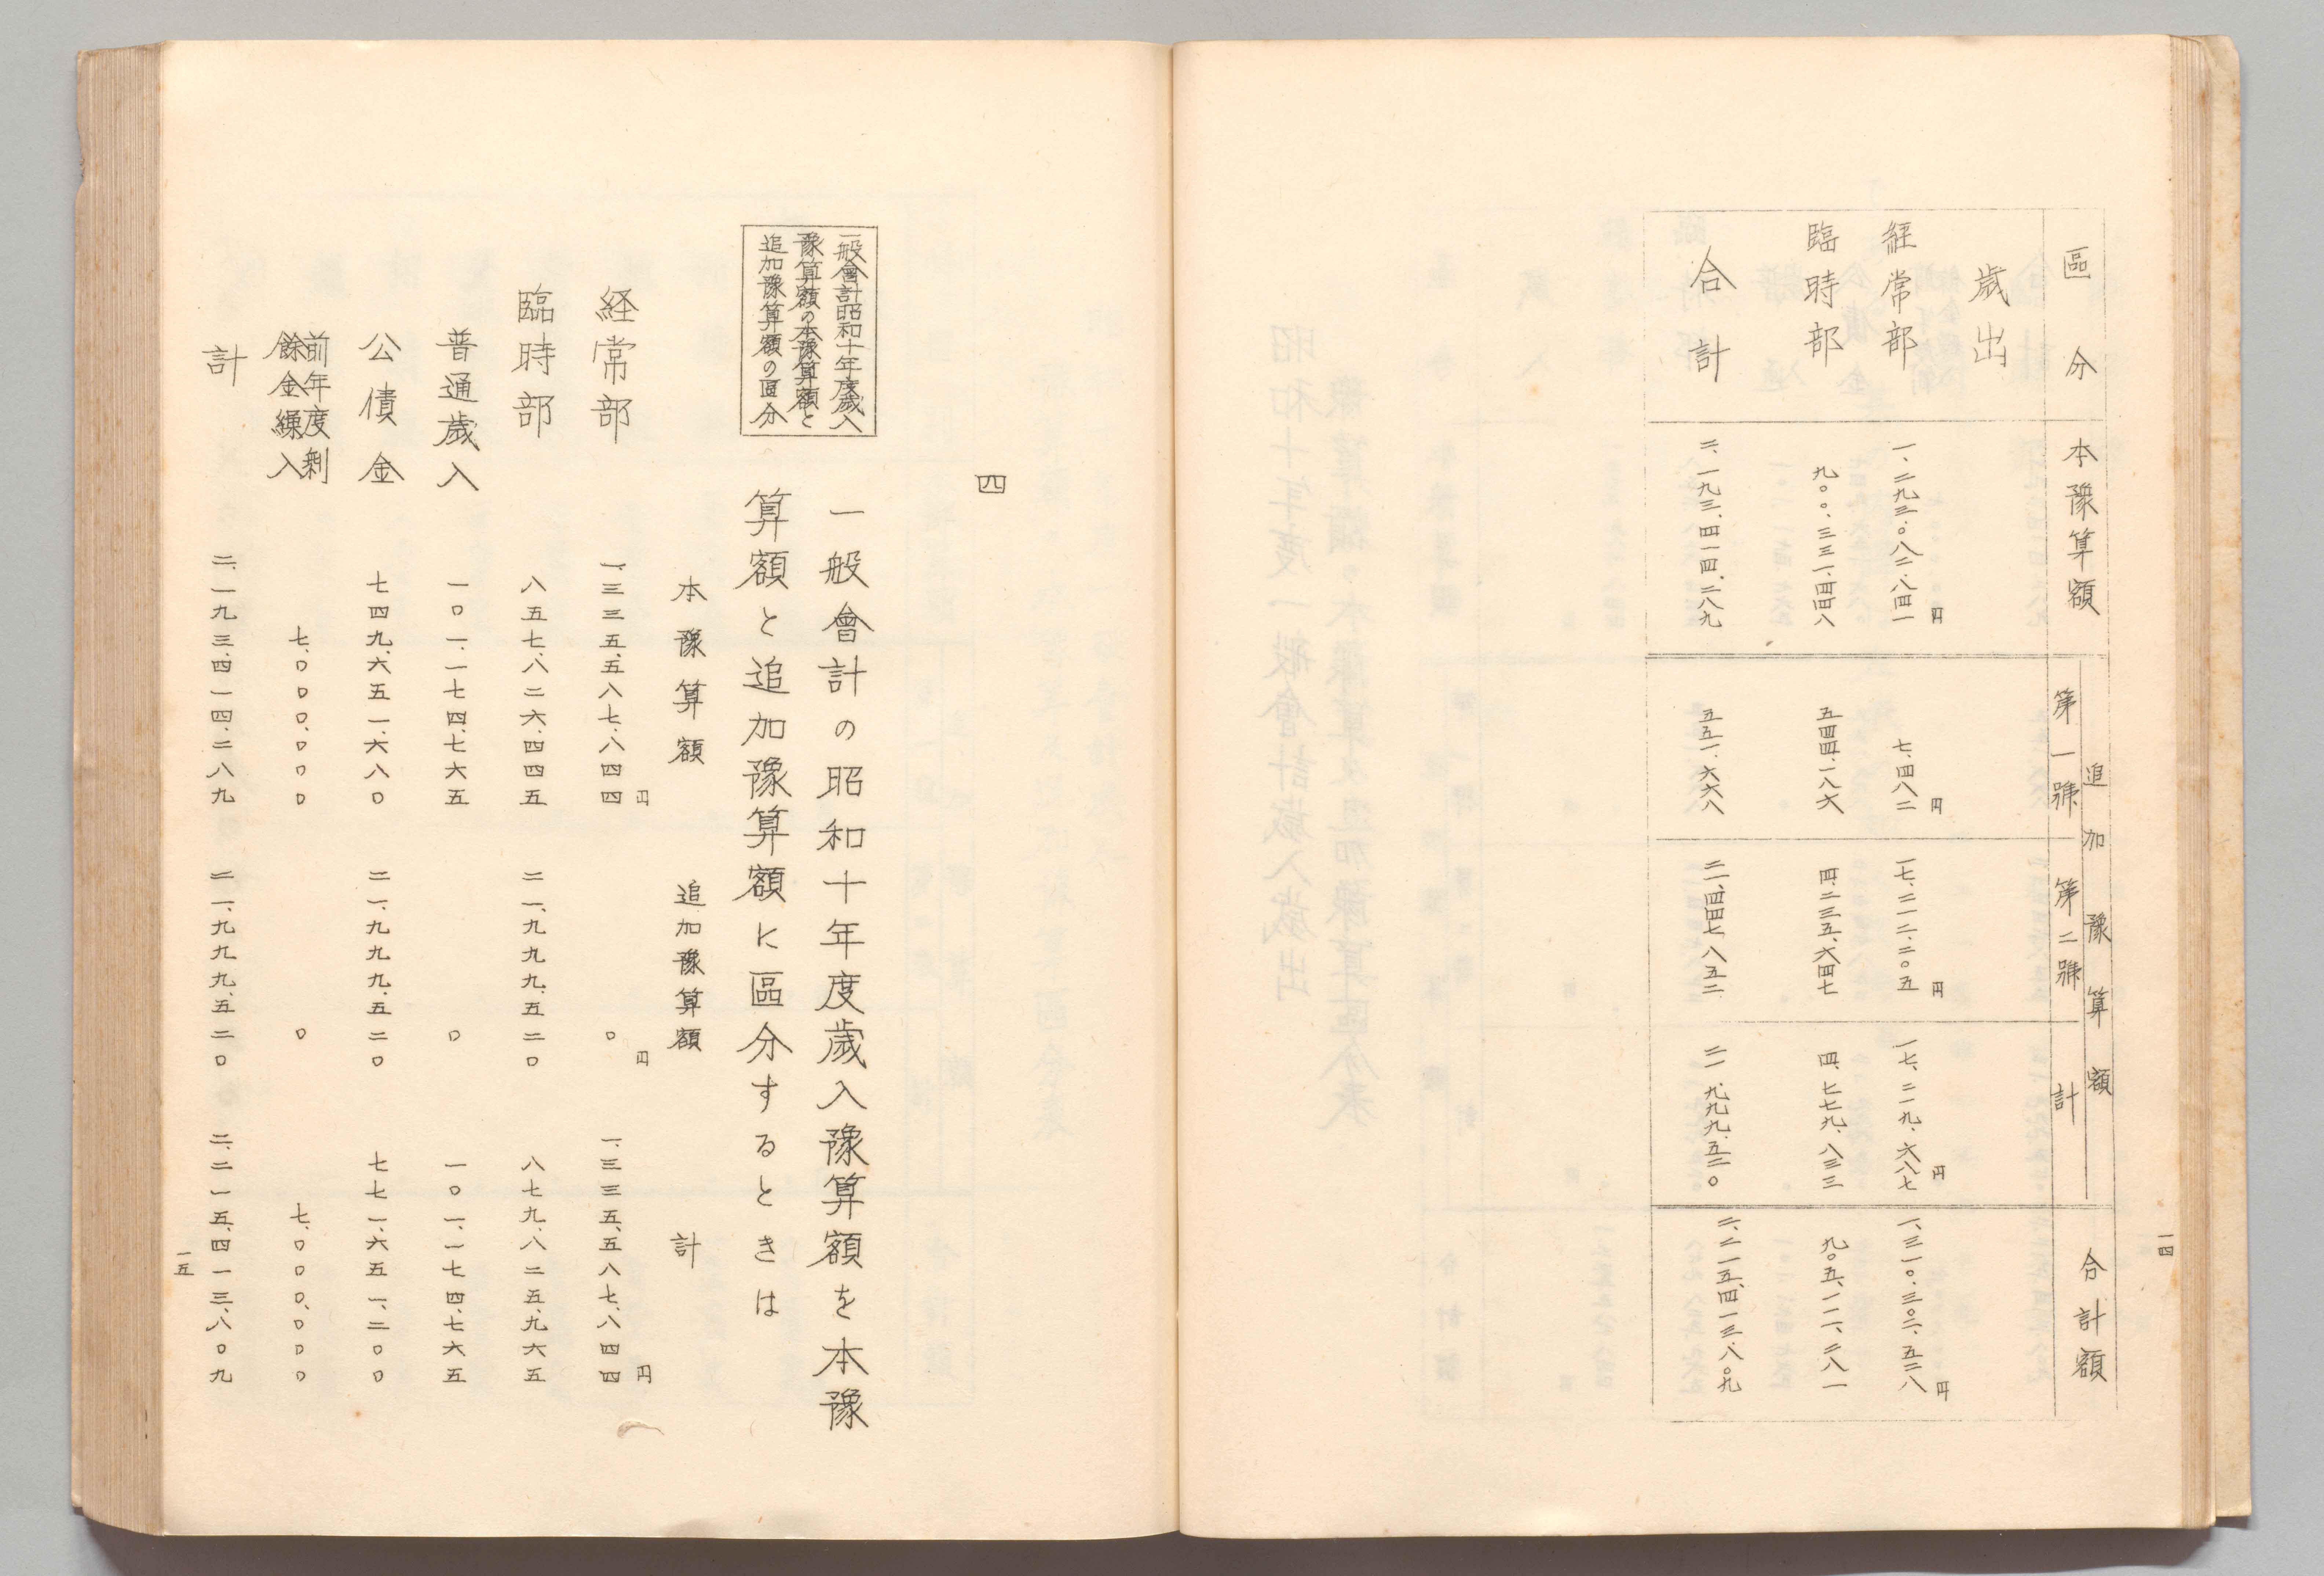 一四
區分 本豫算額 追加豫算額 合計額
第一號 第二號 計
歳出
円 円 円 円 円
経常部 一、二九三、〇八二、八四一 七、四八二 一七、二一二、二〇五 一七、二一九、六八七 一、三一〇、三〇二、五二八
臨時部 九〇〇、三三一、四四八 五四四、一八六 四、二三五、六四七 四、七七九、八三三 九〇五、一一一、二八一
合計 二、一九三、四一四、二八九 五五一、六六八 二一、四四七、八五二 二一、九九九、五二〇 二、二一五、四一三、八〇九
四
一般會計昭和十年度歳入
豫算額の本豫算額と
追加豫算額の區分
一般會計の昭和十年度歳入豫算額を本豫
算額と追加豫算額に區分するときは
本豫算額 追加豫算額 計
円 円 円
経常部 一、三三五、五八七、八四四 〇 一、三三五、五八七、八四四
臨時部 八五七、八二六、四四五 二一、九九九、五二〇 八七九、八二五、九六五
普通歳入 一〇一、一七四、七六五 〇 一〇一、一七四、七六五
公債金 七四九、六五一、六八〇 二一、九九九、五二〇 七七一、六五一、二〇〇
前年度剰
餘金繰入 七、〇〇〇、〇〇〇 〇 七、〇〇〇、〇〇〇
計 二、一九三、四一四、二八九 二一、九九九、五二〇 二、二一五、四一三、八〇九
一五